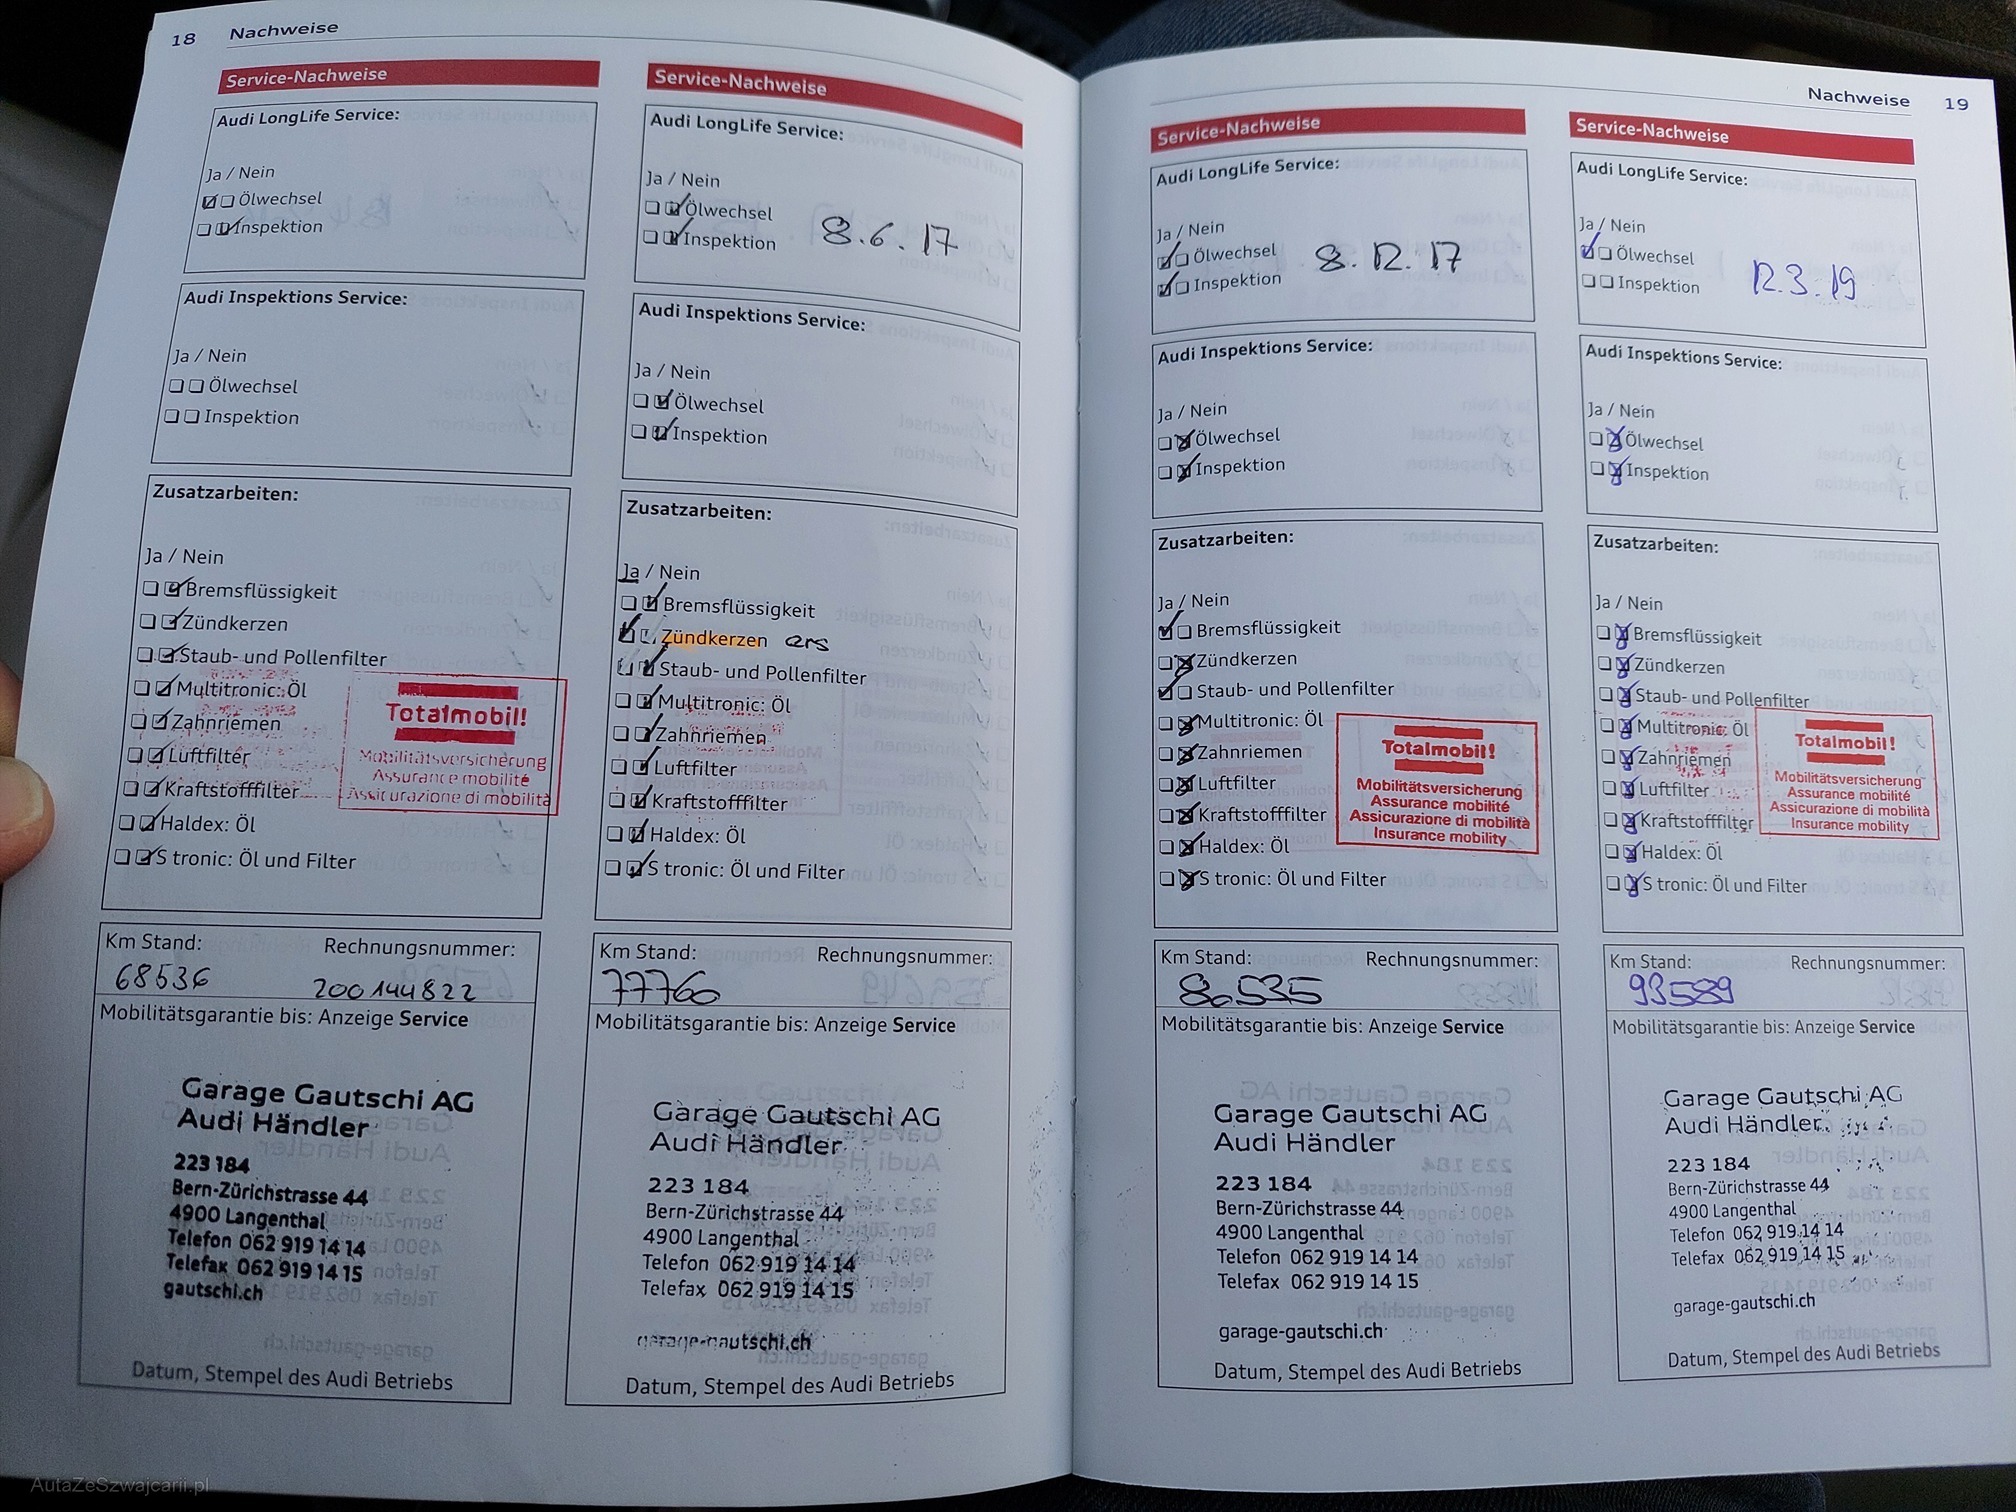 18 Nachweise
Service-Nachweise
Audi LongLife Service:
Ja / Nein
Ölwechsel
Inspektion
Audi Inspektions Service:
Ja / Nein
Ölwechsel
Inspektion
Zusatzarbeiten:
Ja / Nein
Bremsflüssigkeit
Zündkerzen
Staub- und Pollenfilter
Multitronic: Öl
Zahnriemen
Luftfilter
Kraftstofffilter
Haldex: Öl
S tronic: Öl und Filter
Totalmobil!
Mobilitätsversicherung
Assurance mobilité
Assicurazione di mobilità
Km Stand: Rechnungsnummer:
68536 200144822
Mobilitätsgarantie bis: Anzeige Service
Garage Gautschi AG
Audi Händler
223 184
Bern-Zürichstrasse 44
4900 Langenthal
Telefon 062 919 14 14
Telefax 062 919 14 15
gautschi.ch
Datum, Stempel des Audi Betriebs
Service-Nachweise
Audi LongLife Service:
Ja / Nein
Ölwechsel
Inspektion
8.6.17
Audi Inspektions Service:
Ja / Nein
Ölwechsel
Inspektion
Zusatzarbeiten:
Ja / Nein
Bremsflüssigkeit
Zündkerzen ers
Staub- und Pollenfilter
Multitronic: Öl
Zahnriemen
Luftfilter
Kraftstofffilter
Haldex: Öl
S tronic: Öl und Filter
Km Stand: Rechnungsnummer:
77760
Mobilitätsgarantie bis: Anzeige Service
Garage Gautschi AG
Audi Händler
223 184
Bern-Zürichstrasse 44
4900 Langenthal
Telefon 062 919 14 14
Telefax 062 919 14 15
garage-gautschi.ch
Datum, Stempel des Audi Betriebs
Nachweise 19
Service-Nachweise
Audi LongLife Service:
Ja / Nein
Ölwechsel
Inspektion
8.12.17
Audi Inspektions Service:
Ja / Nein
Ölwechsel
Inspektion
Zusatzarbeiten:
Ja / Nein
Bremsflüssigkeit
Zündkerzen
Staub- und Pollenfilter
Multitronic: Öl
Zahnriemen
Luftfilter
Kraftstofffilter
Haldex: Öl
S tronic: Öl und Filter
Totalmobil!
Mobilitätsversicherung
Assurance mobilité
Assicurazione di mobilità
Insurance mobility
Km Stand: Rechnungsnummer:
80535
Mobilitätsgarantie bis: Anzeige Service
Garage Gautschi AG
Audi Händler
223 184
Bern-Zürichstrasse 44
4900 Langenthal
Telefon 062 919 14 14
Telefax 062 919 14 15
garage-gautschi.ch
Datum, Stempel des Audi Betriebs
Service-Nachweise
Audi LongLife Service:
Ja / Nein
Ölwechsel
Inspektion
12.3.19
Audi Inspektions Service:
Ja / Nein
Ölwechsel
Inspektion
Zusatzarbeiten:
Ja / Nein
Bremsflüssigkeit
Zündkerzen
Staub- und Pollenfilter
Multitronic: Öl
Zahnriemen
Luftfilter
Kraftstofffilter
Haldex: Öl
S tronic: Öl und Filter
Totalmobil!
Mobilitätsversicherung
Assurance mobilité
Assicurazione di mobilità
Insurance mobility
Km Stand: Rechnungsnummer:
93589
Mobilitätsgarantie bis: Anzeige Service
Garage Gautschi AG
Audi Händler
223 184
Bern-Zürichstrasse 44
4900 Langenthal
Telefon 062 919 14 14
Telefax 062 919 14 15
garage-gautschi.ch
Datum, Stempel des Audi Betriebs
AutaZeSzwajcarii.pl